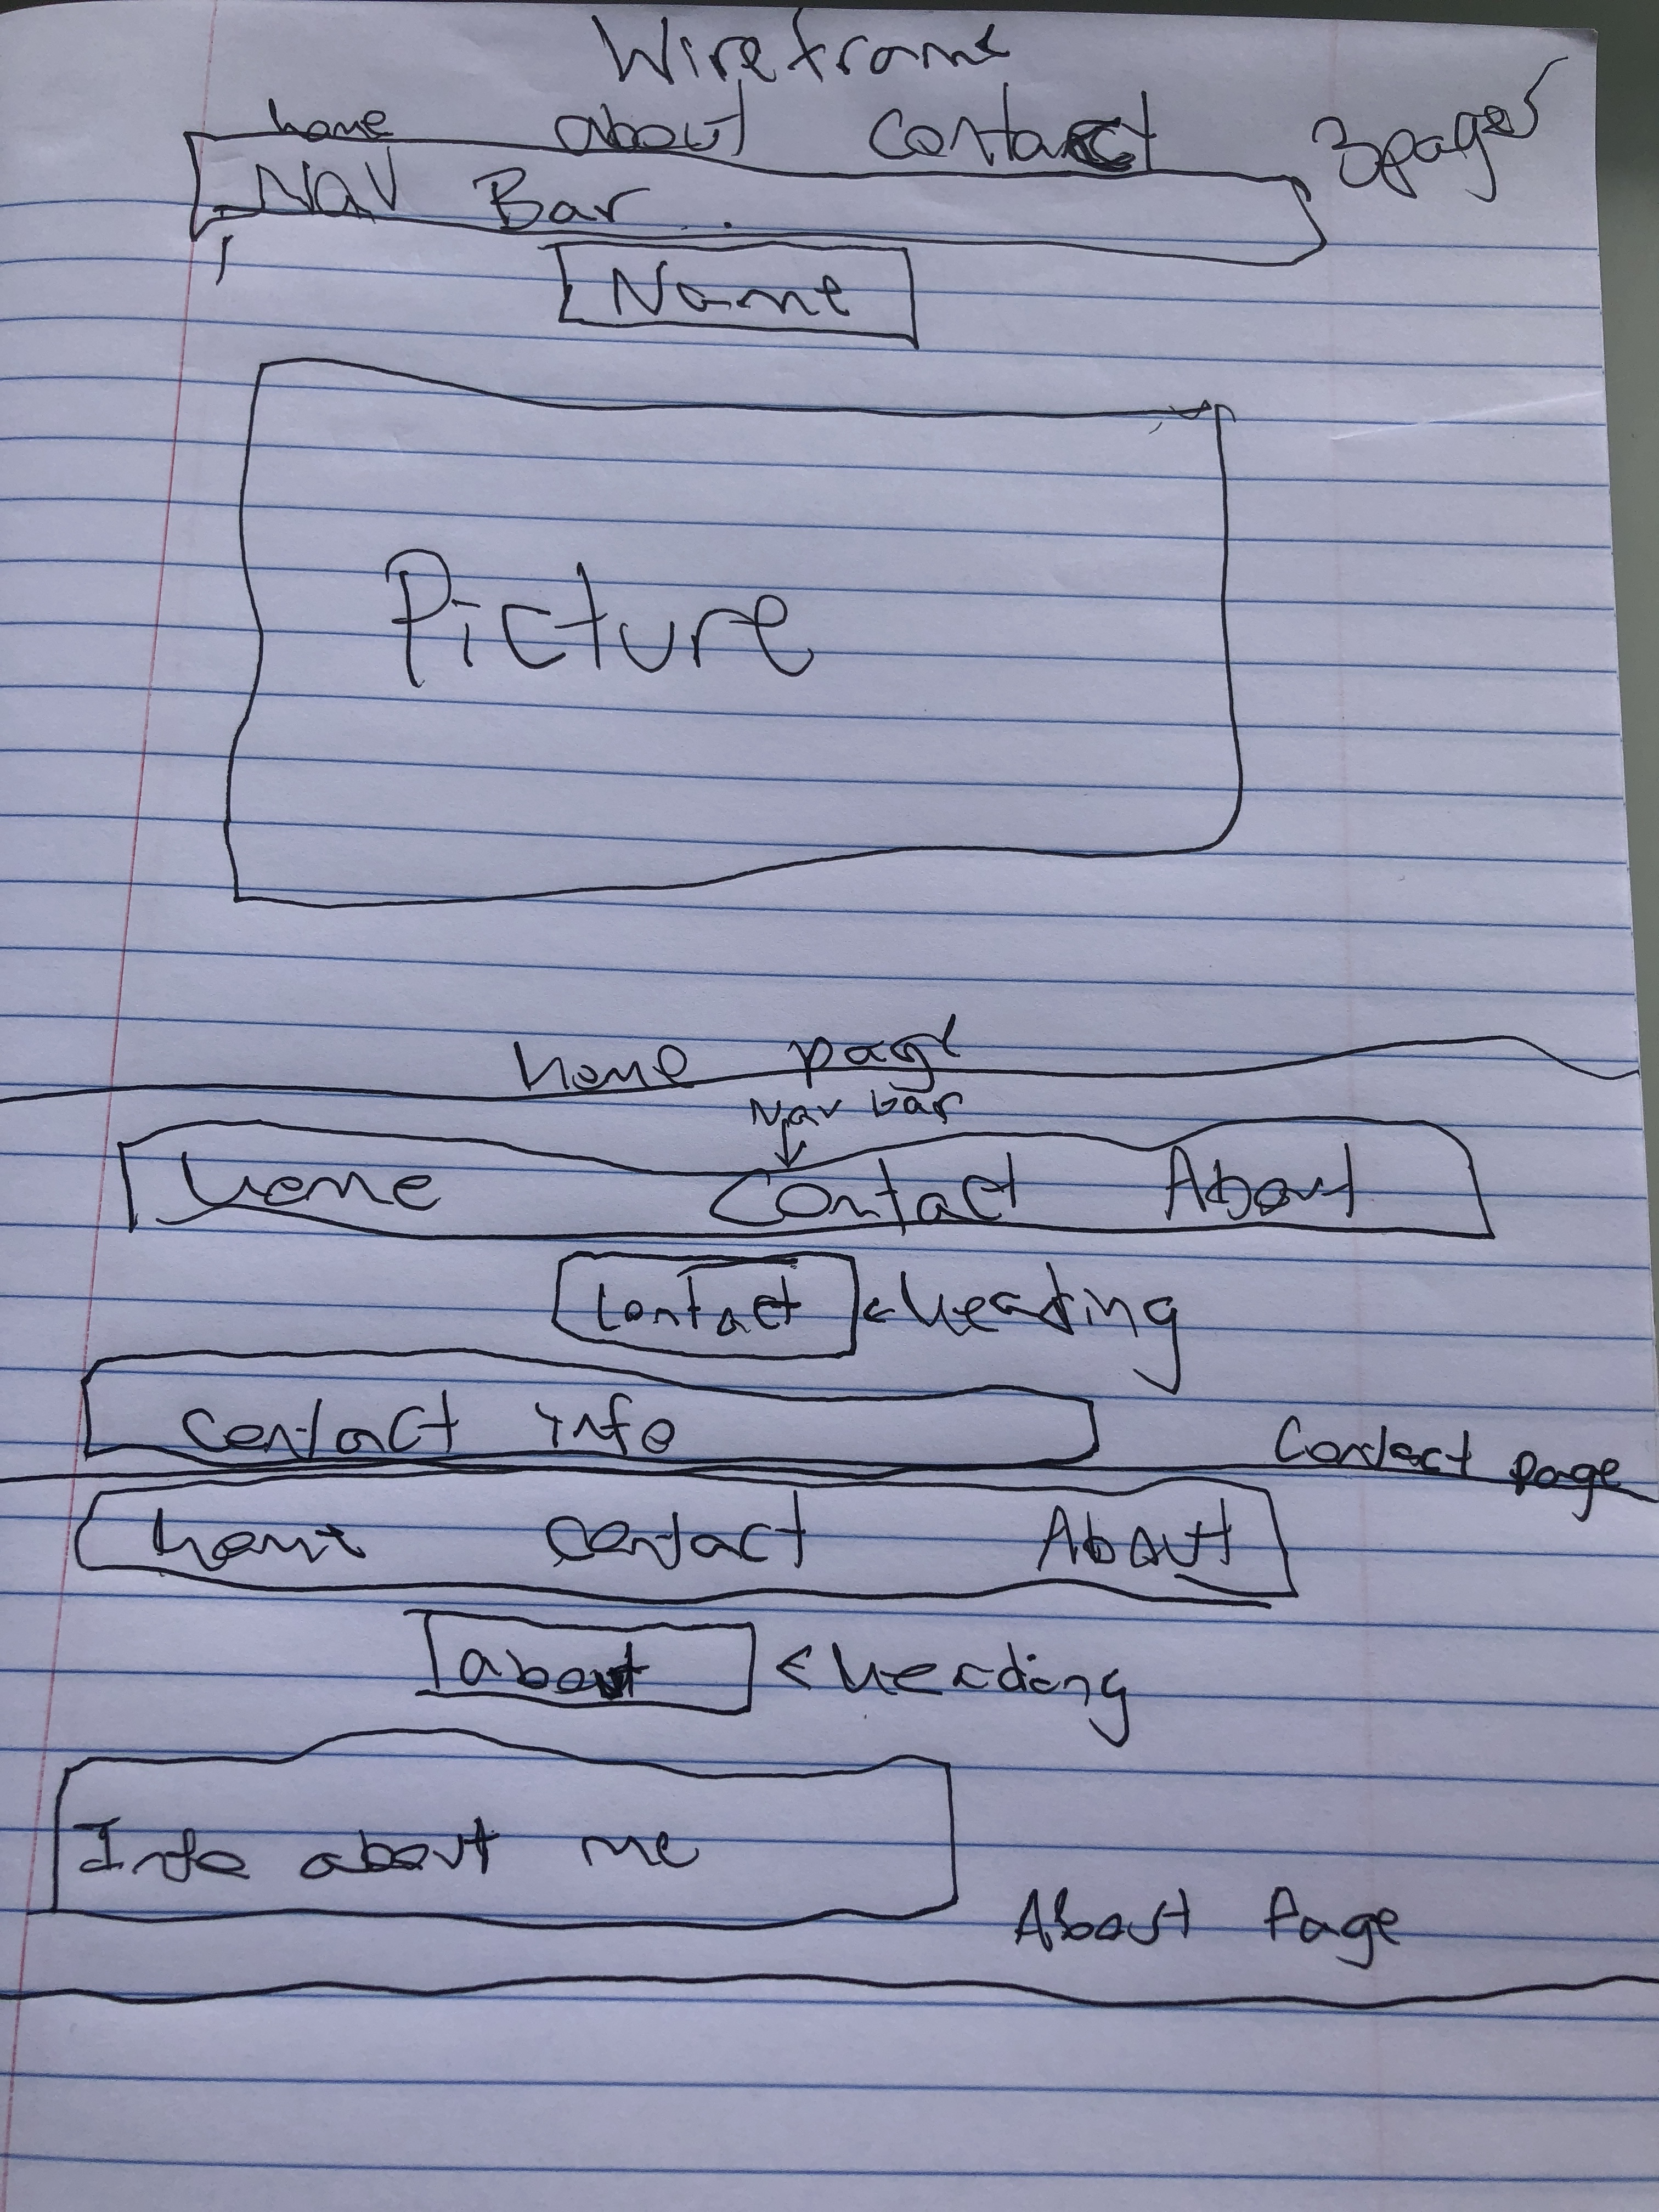 Wireframe
home about contact 3pages
Nav Bar
Name
Picture
home page
Nav bar
home Contact About
Contact < heading
contact info
Contact page
home contact About
about < heading
Info about me
About Page